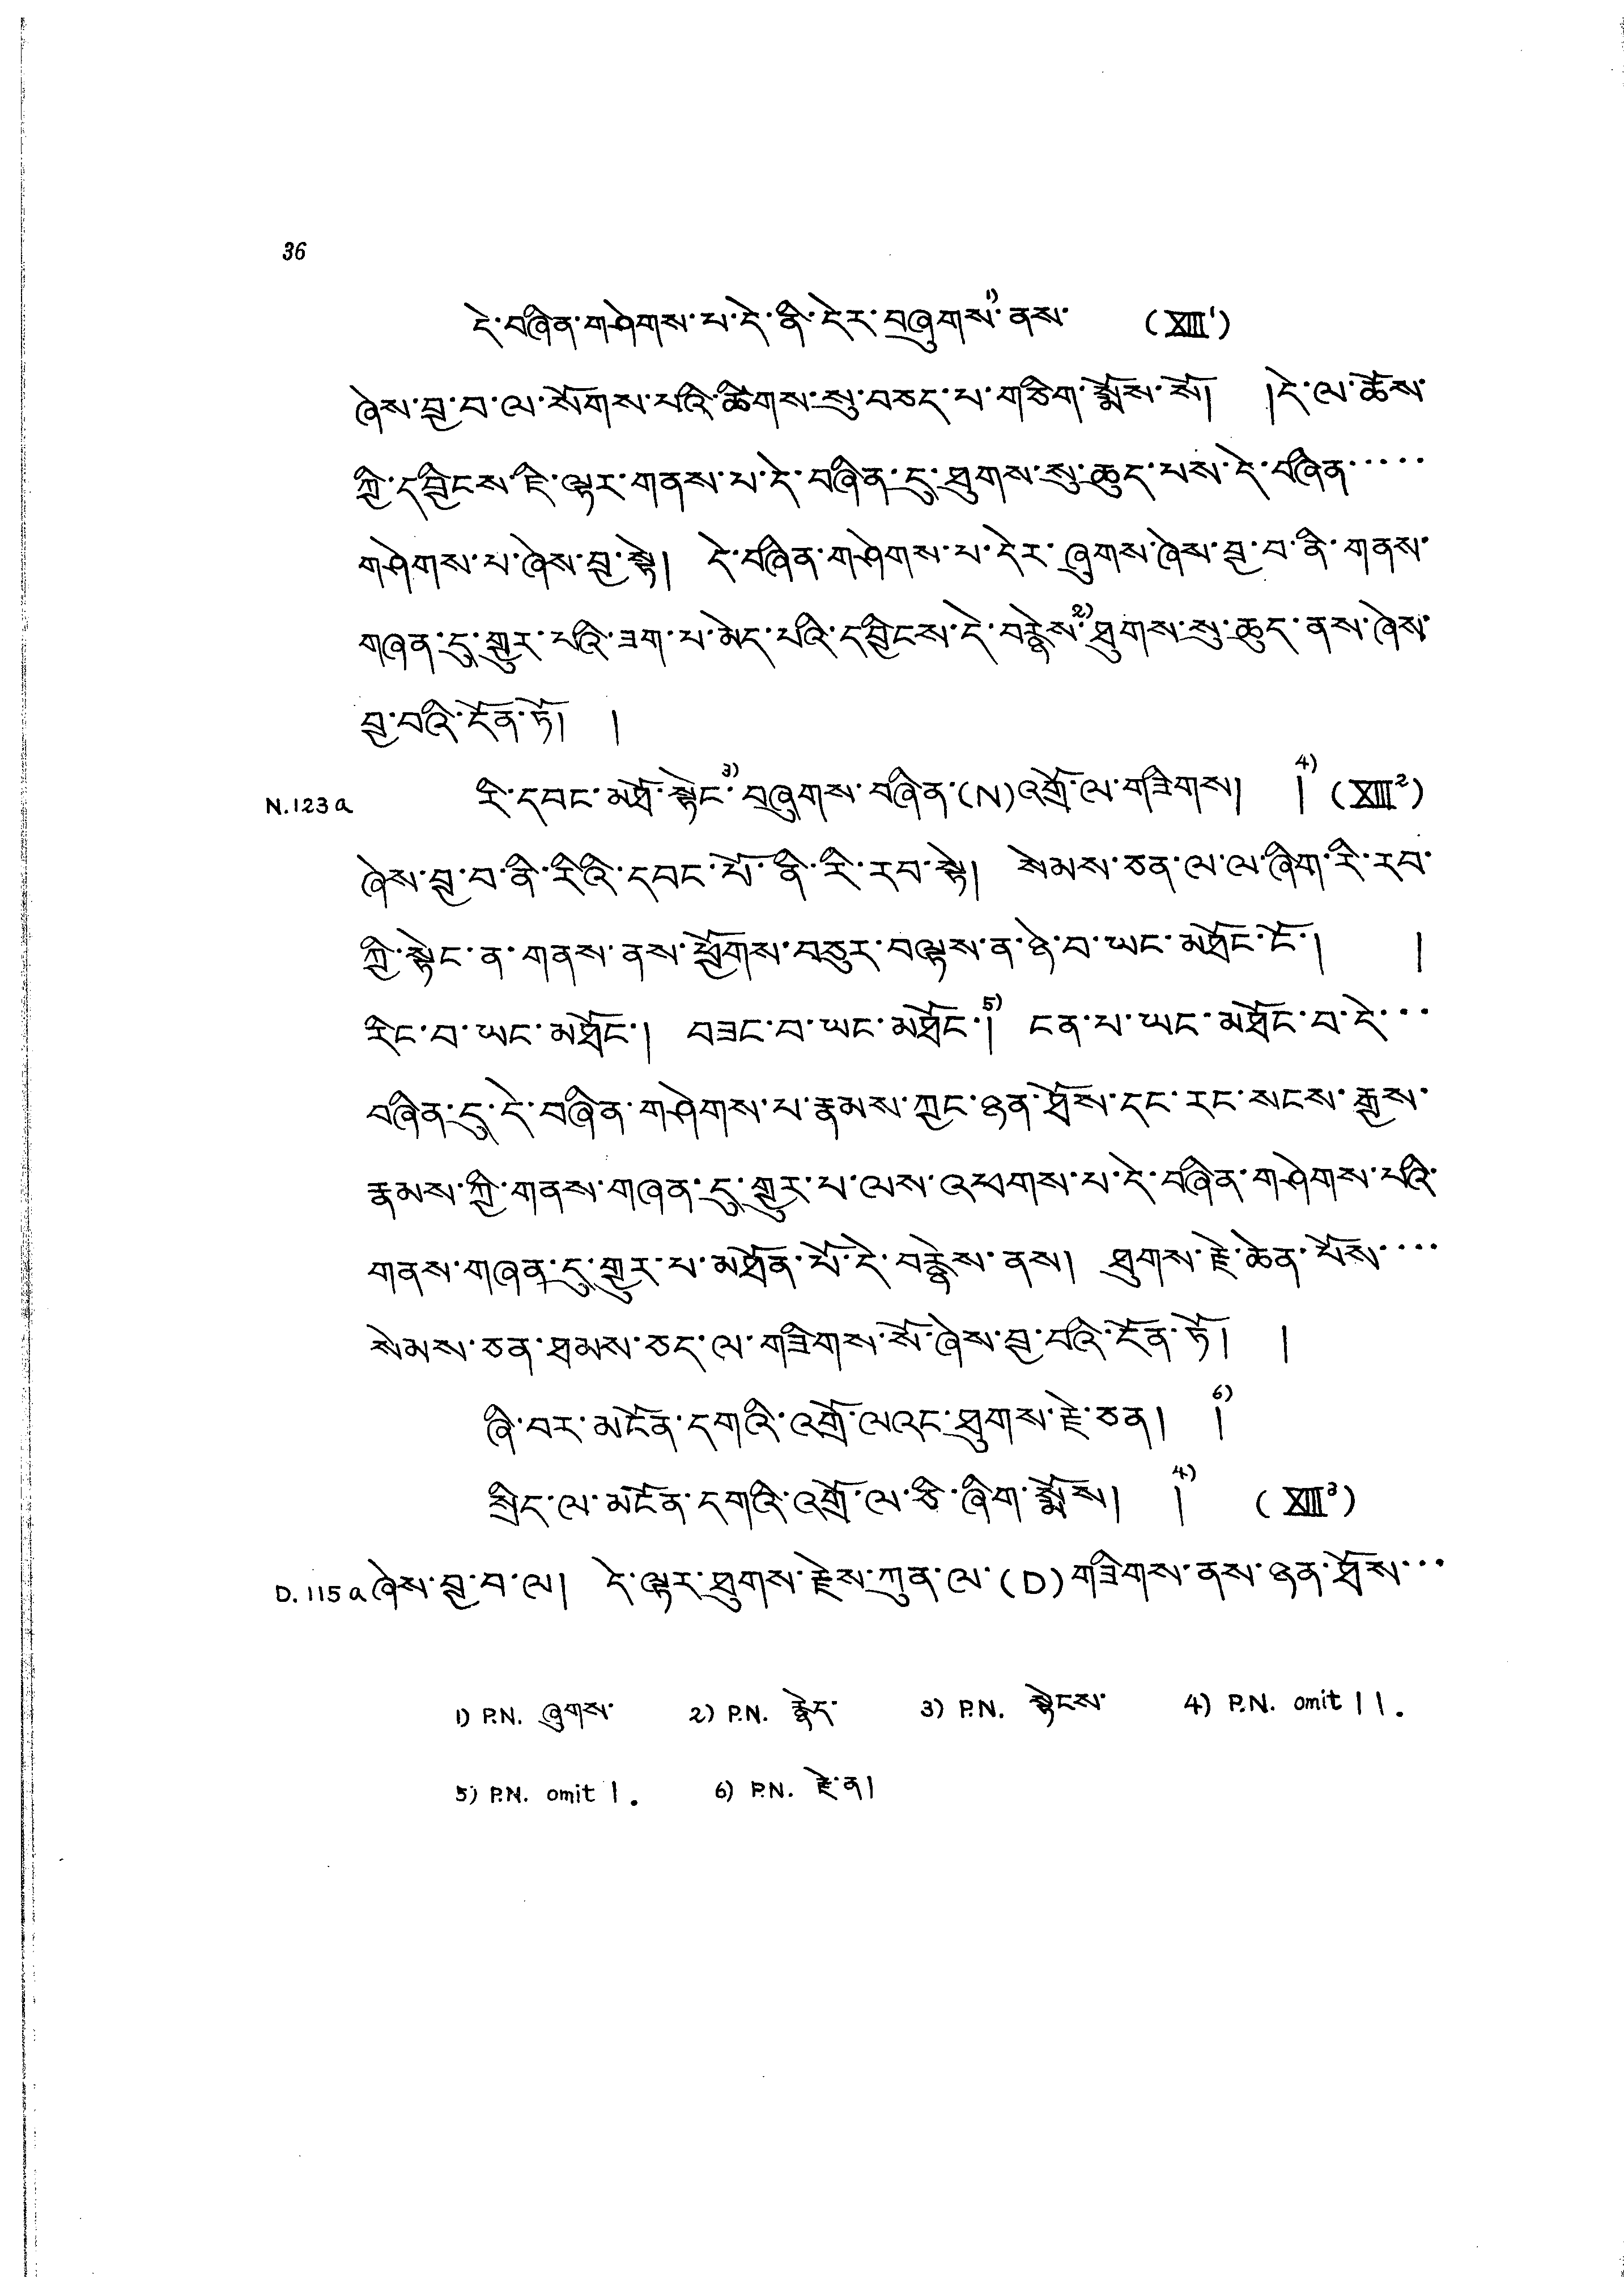 36
དེ་བཞིན་གཤེགས་པ་དེ་ནི་དེར་བཞུགས་1)ནས་ (XIII1)
ཞེས་བྱ་བ་ལ་སོགས་པའི་ཚིགས་སུ་བཅད་པ་གཅིག་སྨོས་སོ། །དེ་ལ་ཆོས་
ཀྱི་དབྱིངས་ཇི་ལྟར་གནས་པ་དེ་བཞིན་དུ་ཐུགས་སུ་ཆུད་པས་དེ་བཞིན་....
གཤེགས་པ་ཞེས་བྱ་སྟེ། དེ་བཞིན་གཤེགས་པ་དེར་ཞུགས་ཞེས་བྱ་བ་ནི་གནས་
གཞན་དུ་གྱུར་པའི་ཟག་པ་མེད་པའི་དབྱིངས་དེ་བརྙེས་2)ཐུགས་སུ་ཆུད་ནས་ཞེས་
བྱ་བའི་དོན་ཏོ། །
N.123a རི་དབང་མཐོ་སྟེང་3)བཞུགས་བཞིན་(N)འགྲོ་ལ་གཟིགས། །4) (XIII2)
ཞེས་བྱ་བ་ནི་རིའི་དབང་པོ་ནི་རི་རབ་སྟེ། སེམས་ཅན་ལ་ལ་ཞིག་རི་རབ་
ཀྱི་སྟེང་ན་གནས་ནས་ཕྱོགས་བཅུར་བལྟས་ན་ཉེ་བ་ཡང་མཐོང་ངོ་། །
རིང་བ་ཡང་མཐོང་། བཟང་བ་ཡང་མཐོང་།5) ངན་པ་ཡང་མཐོང་བ་དེ་...
བཞིན་དུ་དེ་བཞིན་གཤེགས་པ་རྣམས་ཀྱང་ཉན་ཐོས་དང་རང་སངས་རྒྱས་
རྣམས་ཀྱི་གནས་གཞན་དུ་གྱུར་པ་ལས་འཕགས་པ་དེ་བཞིན་གཤེགས་པའི་
གནས་གཞན་དུ་གྱུར་པ་མཐོན་པོ་དེ་བརྙེས་ནས། ཐུགས་རྗེ་ཆེན་པོས་...
སེམས་ཅན་ཐམས་ཅད་ལ་གཟིགས་སོ་ཞེས་བྱ་བའི་དོན་ཏོ། །
ཞི་བར་མངོན་དགའི་འགྲོ་ལའང་ཐུགས་རྗེ་ཅན། །6)
སྲིད་ལ་མངོན་དགའི་འགྲོ་ལ་ཅི་ཞིག་སྨོས། །4) (XIII3)
D.115a ཞེས་བྱ་བ་ལ། དེ་ལྟར་ཐུགས་རྗེས་ཀུན་ལ་(D)གཟིགས་ནས་ཉན་ཐོས་...
1) P.N. ཞུགས་ 2) P.N. རྙེད་ 3) P.N. སྟེངས་ 4) P.N. omit །།.
5) P.N. omit །. 6) P.N. རྗེ་ན།